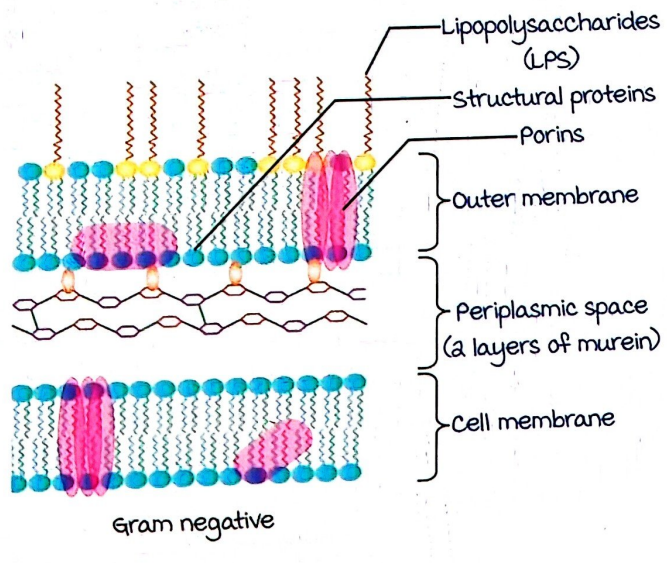 Lipopolysaccharides
(LPS)
Structural proteins
Porins
Outer membrane
Periplasmic space
(2 layers of murein)
Cell membrane
Gram negative